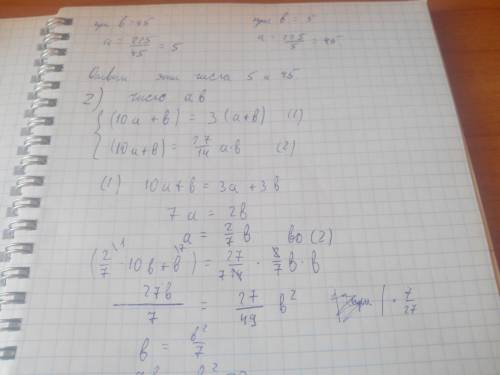 при b = 45 при b = 5
a = 225/45 = 5 a = 225/5 = 45
эти числа 5 и 45
2) число ab
{ (10a + b) = 3 (a+b) (1)
(10a+b) = 27/14 a·b (2)
(1) 10a+b = 3a + 3b
7a = 2b
a = 2/7 b во (2)
(2/7 · 10b + b) = 27/14 · 2/7 b · b
27b/7 = 27/49 b² | · 7/27
b = b²/7